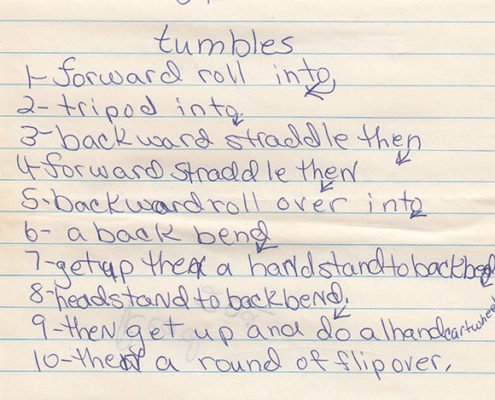 tumbles
1-forward roll into
2-tripod into
3-backward straddle then
4-forward straddle then
5-backward roll over into
6- a back bend
7-getup then a handstand to backbend
8-headstand to backbend.
9-then get up and do a 1hand cartwheel
10-then a round of flipover.